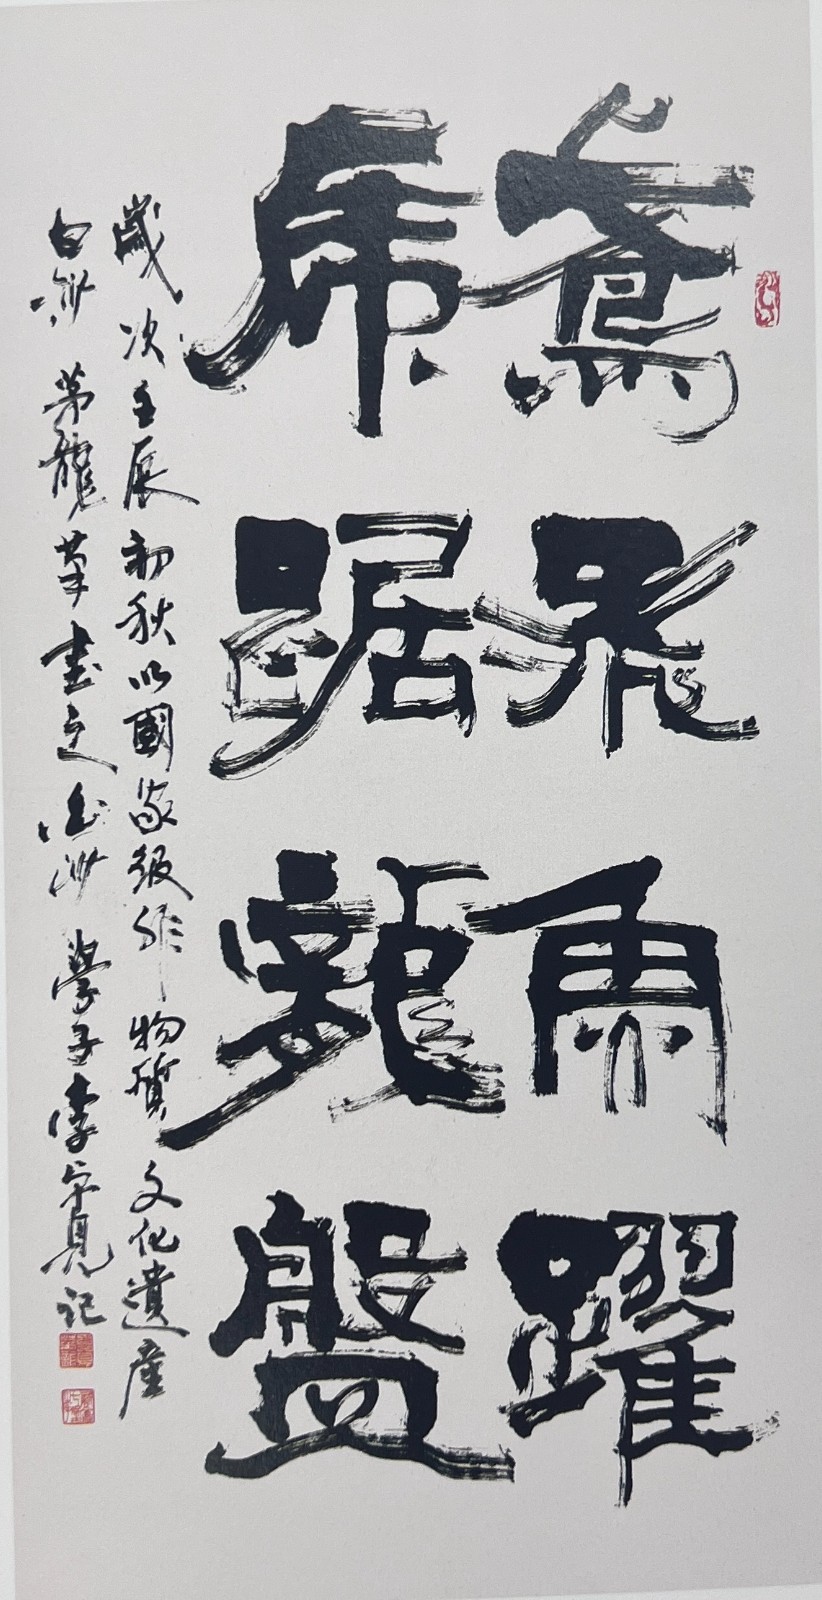 鳶飛魚躍
虎踞龍盤
歲次壬辰初秋以國家級非物質文化遺產
白沙茅龍筆書之白沙學子李見記